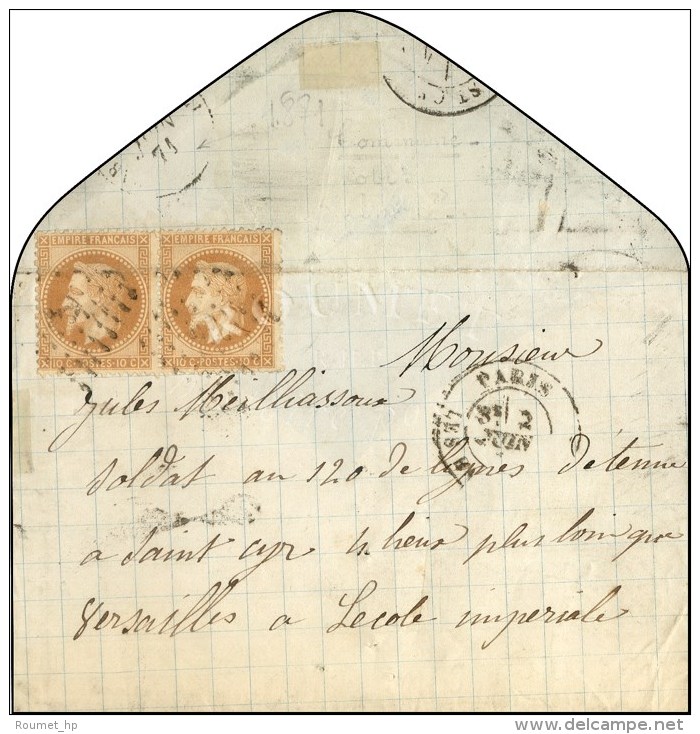 1871
Commune
JUIN
71
EMPIRE FRANÇAIS EMPIRE FRANÇAIS
10 C. POSTES. 10 C. 10 C. POSTES. 10 C.
PARIS
2
Monsieur
Jules Meilliassoux
Soldat au 120 de lignes détenu
a Saint Cyr 4 lieux plus loin que
Versailles a Lecole imperiale
Roumet_hp
www.delcampe.net